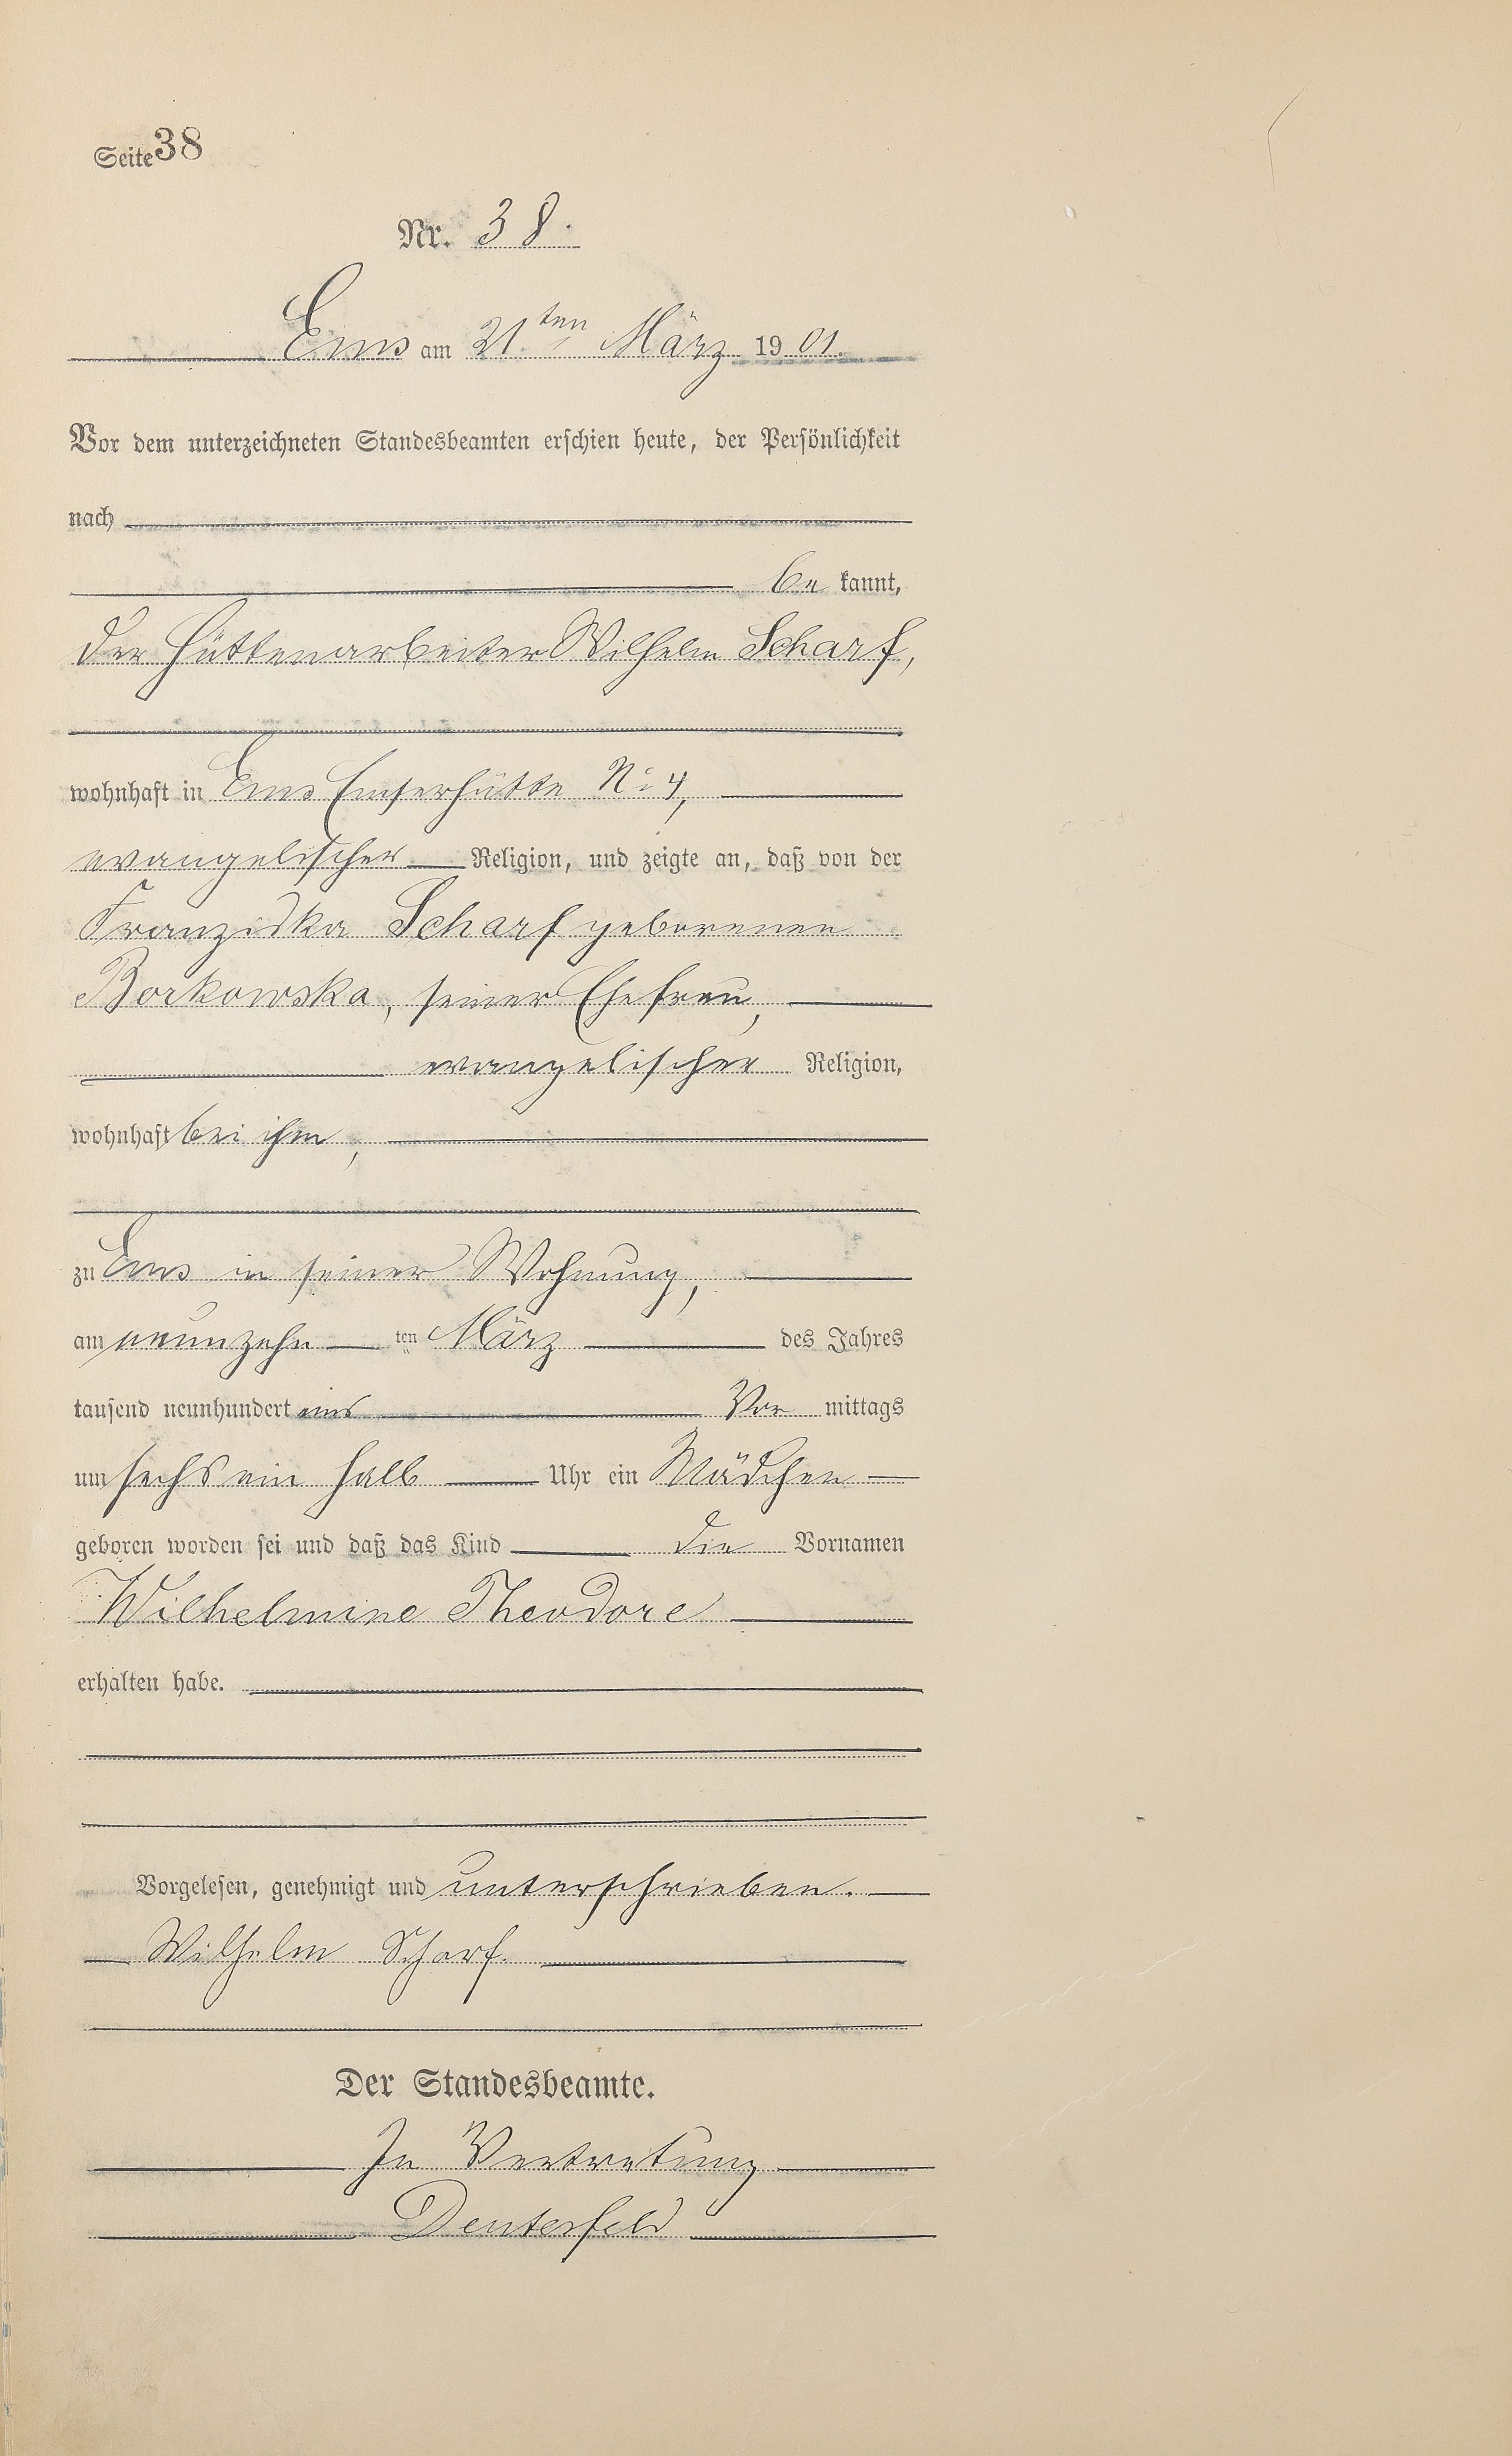 Seite 38
Nr. 38.
Ems am 21.ten März 1901.
Vor dem unterzeichneten Standesbeamten erschien heute, der Persönlichkeit
nach
be kannt,
der Hüttenarbeiter Wilhelm Scharf,
wohnhaft in Ems Emserhütte No 4,
evangelischer Religion, und zeigte an, daß von der
Franziska Scharf geborenen
Borkowska, seiner Ehefrau,
evangelischer Religion,
wohnhaft bei ihm,
zu Ems in seiner Wohnung,
am neunzehn ten März des Jahres
tausend neunhundert eins Vor mittags
um sechs ein halb Uhr ein Mädchen
geboren worden sei und daß das Kind die Vornamen
Wilhelmine Theodore
erhalten habe.
Vorgelesen, genehmigt und unterschrieben.
Wilhelm Scharf.
Der Standesbeamte.
In Vertretung
Deuterfeld